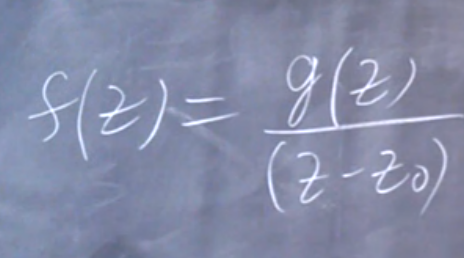 f(z) = g(z) / (z - z₀)